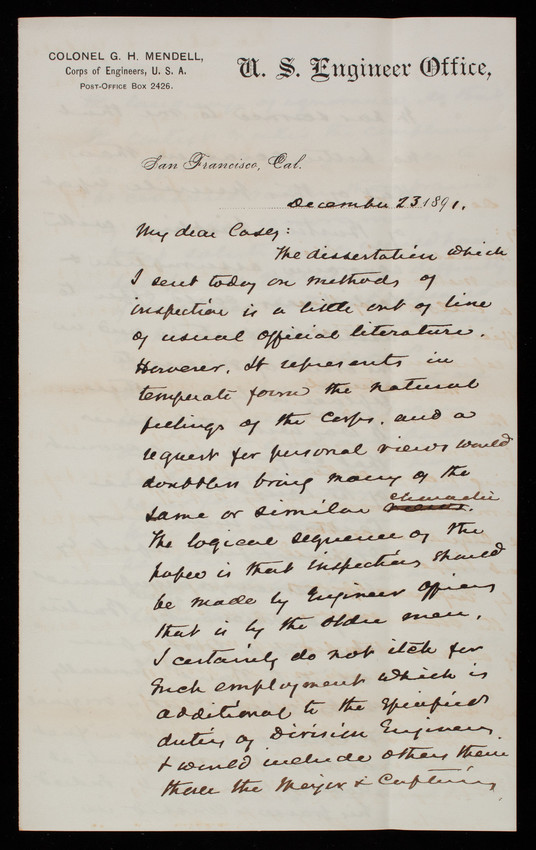 COLONEL G. H. MENDELL,
Corps of Engineers, U. S. A.
POST-OFFICE BOX 2426.
U. S. Engineer Office,
San Francisco, Cal.
December 23 1891.
My dear Casey:
The dissertation which
I sent today on methods of
inspection is a little out of line
of usual official literature.
However, It represents in
temperate form the natural
feelings of the Corps. and a
request for personal views would
doubtless bring many of the
same or similar character.
The logical sequence of the
paper is that inspections should
be made by Engineer Officers
that is by the older men.
I certainly do not itch for
such employment which is
additional to the specified
duties of Division Engineers
& would include others than
those the Major & Captains